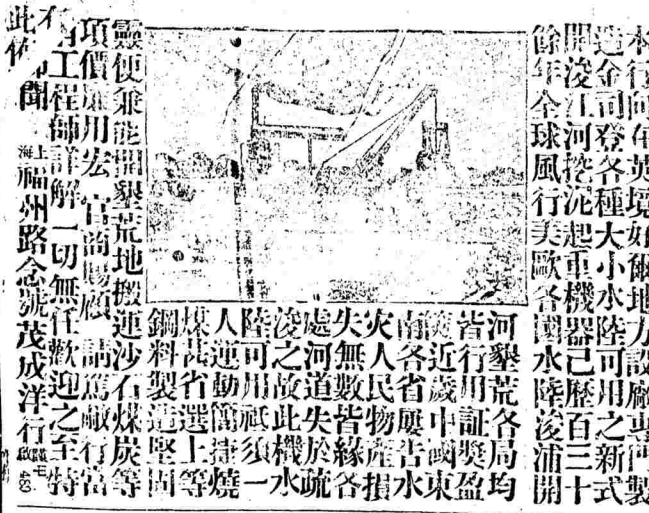 本行向在英境好爾地方設廠專門製
造金司登各種大小水陸可用之新式
開浚江河挖泥起重機器已歷百三十
餘年全球風行美歐各國水陸浚浦開
河墾荒各局均
皆行用証獎盈
近歲中國東
南各省屢告水
灾人民物產損
失無數皆緣各
處河道失於疏
浚之故此機水
陸可用祇須一
人運動簡捷燒
煤甚省選上等
鋼料製造堅固
靈便兼能開墾荒地搬運沙石煤炭等
項價廉用宏 官商賜顧 請駕敝行當
有工程師詳解一切無任歡迎之至特
此佈聞
上海福州路念號茂成洋行啟